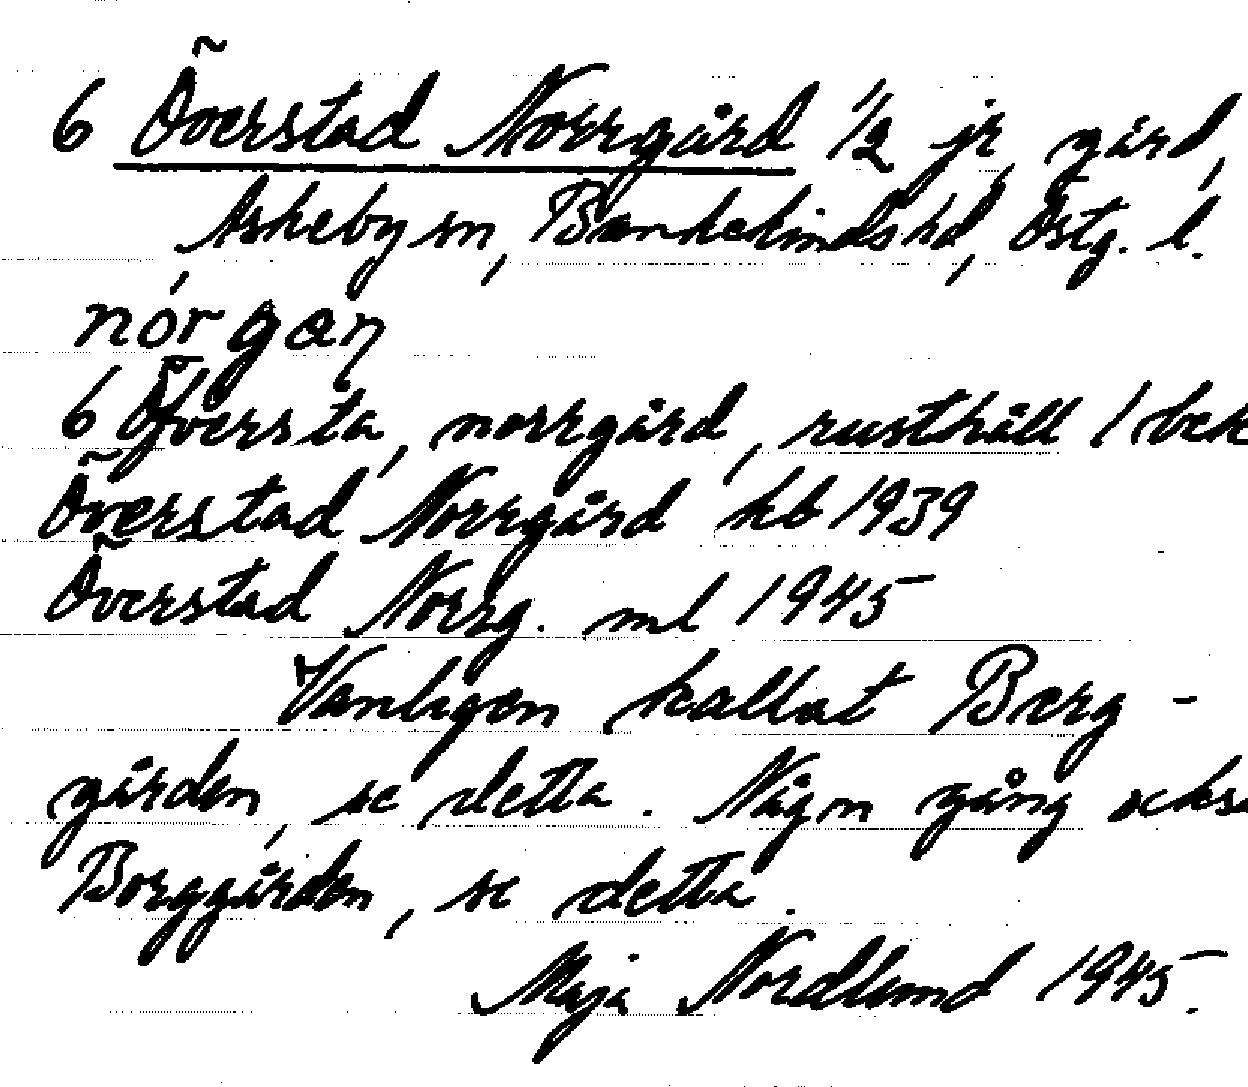 6 Överstad Norrgård 1/2 jr, gård,
Askeby sn, Bankekinds hd, Östg. l.
nórgan
6 Öfversta, norrgård, rusthåll 1 bek
Överstad Norrgård kb 1939
Överstad Norrg. ml 1945
Vanligen kallat Berg-
gården, se detta. Någon gång också
Borggården, se detta.
Maja Nordlund 1945.